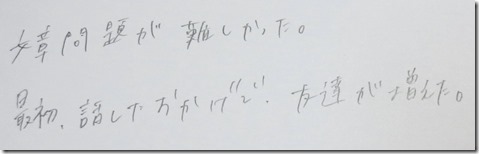 文章問題が難しかった。
最初、話したおかげで、友達が増えた。